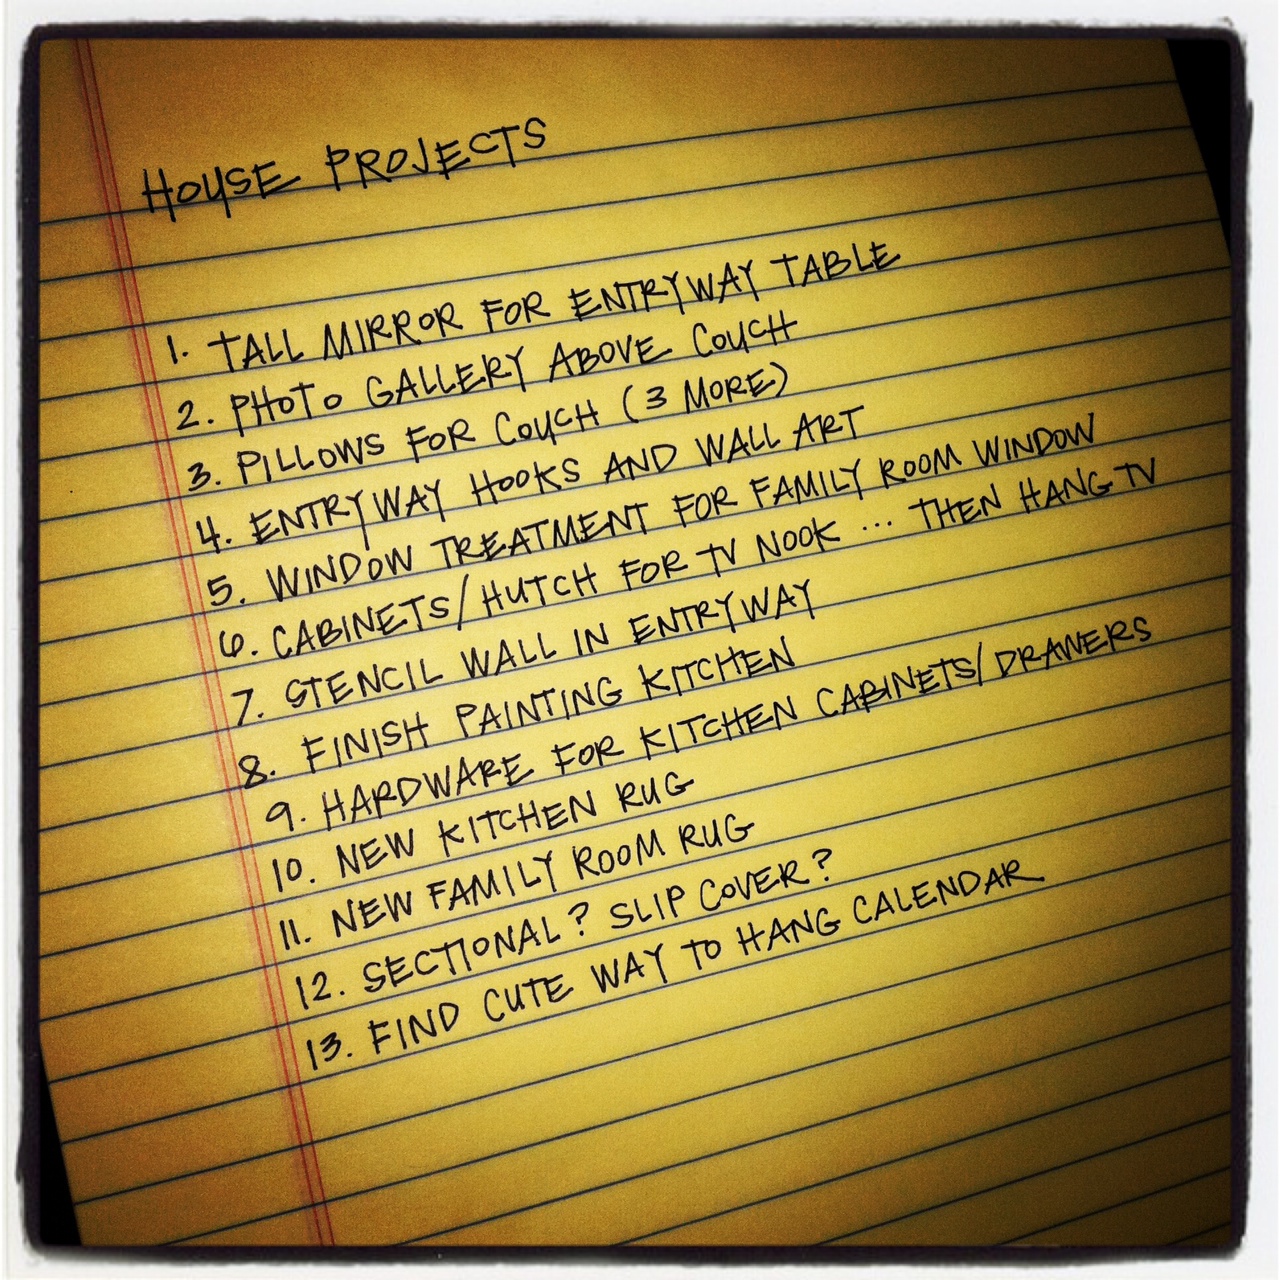 HOUSE PROJECTS
1. TALL MIRROR FOR ENTRYWAY TABLE
2. PHOTO GALLERY ABOVE COUCH
3. PILLOWS FOR COUCH (3 MORE)
4. ENTRYWAY HOOKS AND WALL ART
5. WINDOW TREATMENT FOR FAMILY ROOM WINDOW
6. CABINETS/HUTCH FOR TV NOOK ... THEN HANG TV
7. STENCIL WALL IN ENTRYWAY
8. FINISH PAINTING KITCHEN
9. HARDWARE FOR KITCHEN CABINETS/DRAWERS
10. NEW KITCHEN RUG
11. NEW FAMILY ROOM RUG
12. SECTIONAL? SLIP COVER?
13. FIND CUTE WAY TO HANG CALENDAR